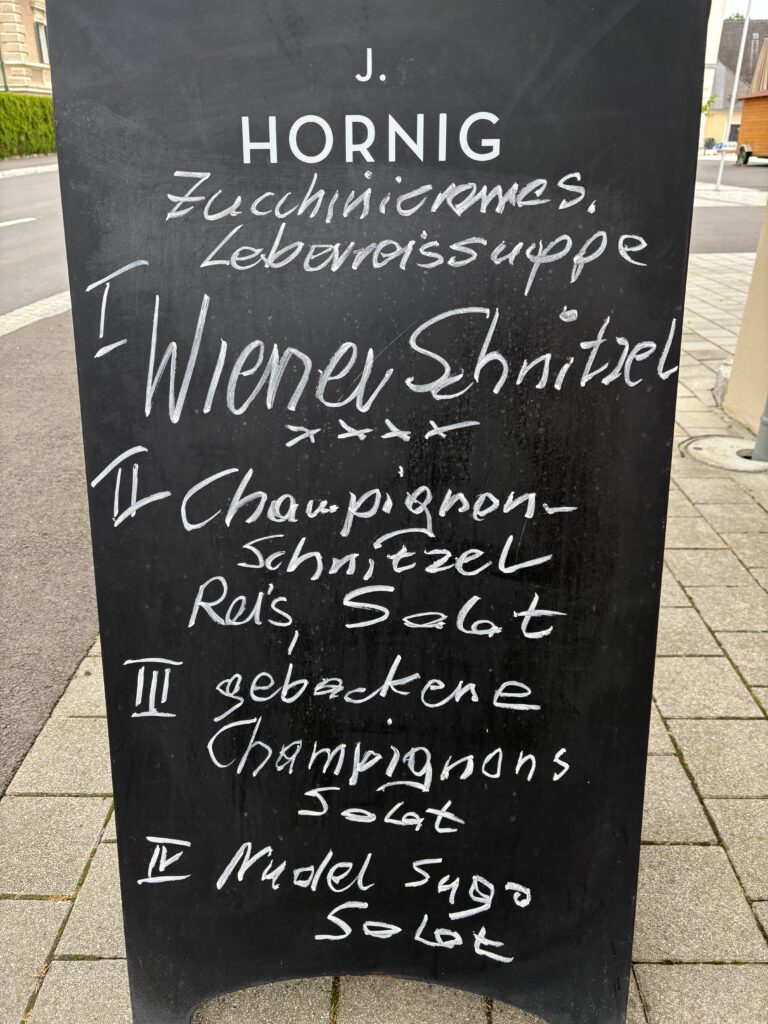 J.
HORNIG
Zucchinicremes.
Leberreissuppe
I Wiener Schnitzel
xxxx
II Champignon-
Schnitzel
Reis, Salat
III gebackene
Champignons
Salat
IV Nudel Sugo
Salat